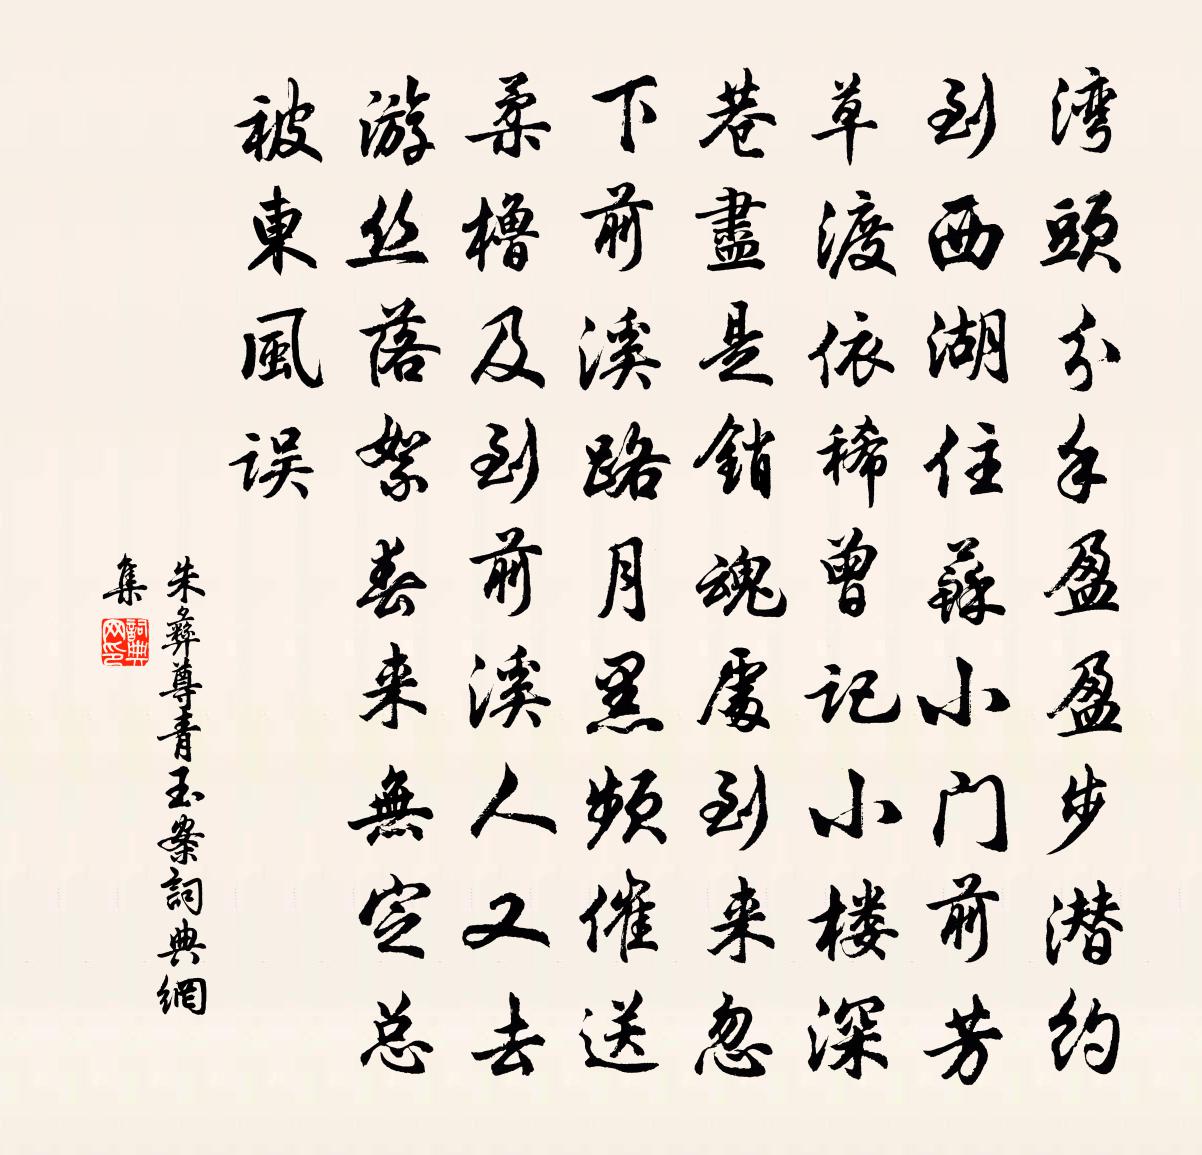 湾頭分手盈盈步潜约
到西湖住蘇小门前芳
草渡依稀曾记小楼深
巷盡是銷魂處到来忽
下前溪路月黑頻催送
柔櫓及到前溪人又去
游丝落絮春来無定总
被東風误
朱彝尊青玉案詞典網
集
詞典
网印